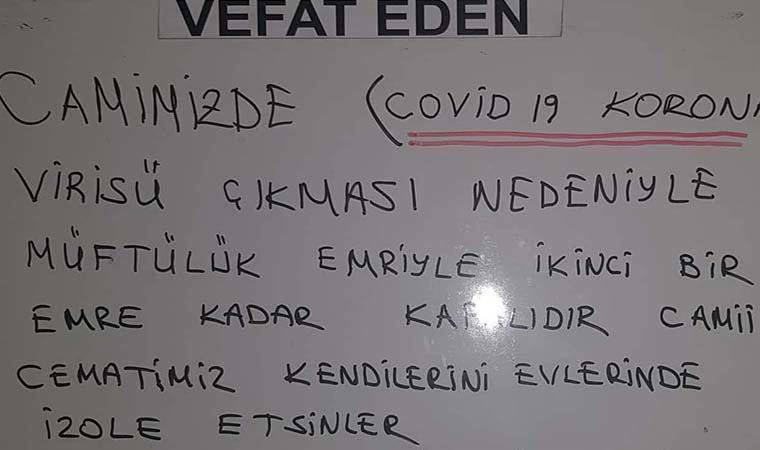 VEFAT EDEN
CAMİMİZDE (COVİD 19 KORONA
VİRİSÜ ÇIKMASI NEDENİYLE
MÜFTÜLÜK EMRİYLE İKİNCİ BİR
EMRE KADAR KAPALIDIR CAMİİ
CEMATİMİZ KENDİLERİNİ EVLERİNDE
İZOLE ETSİNLER